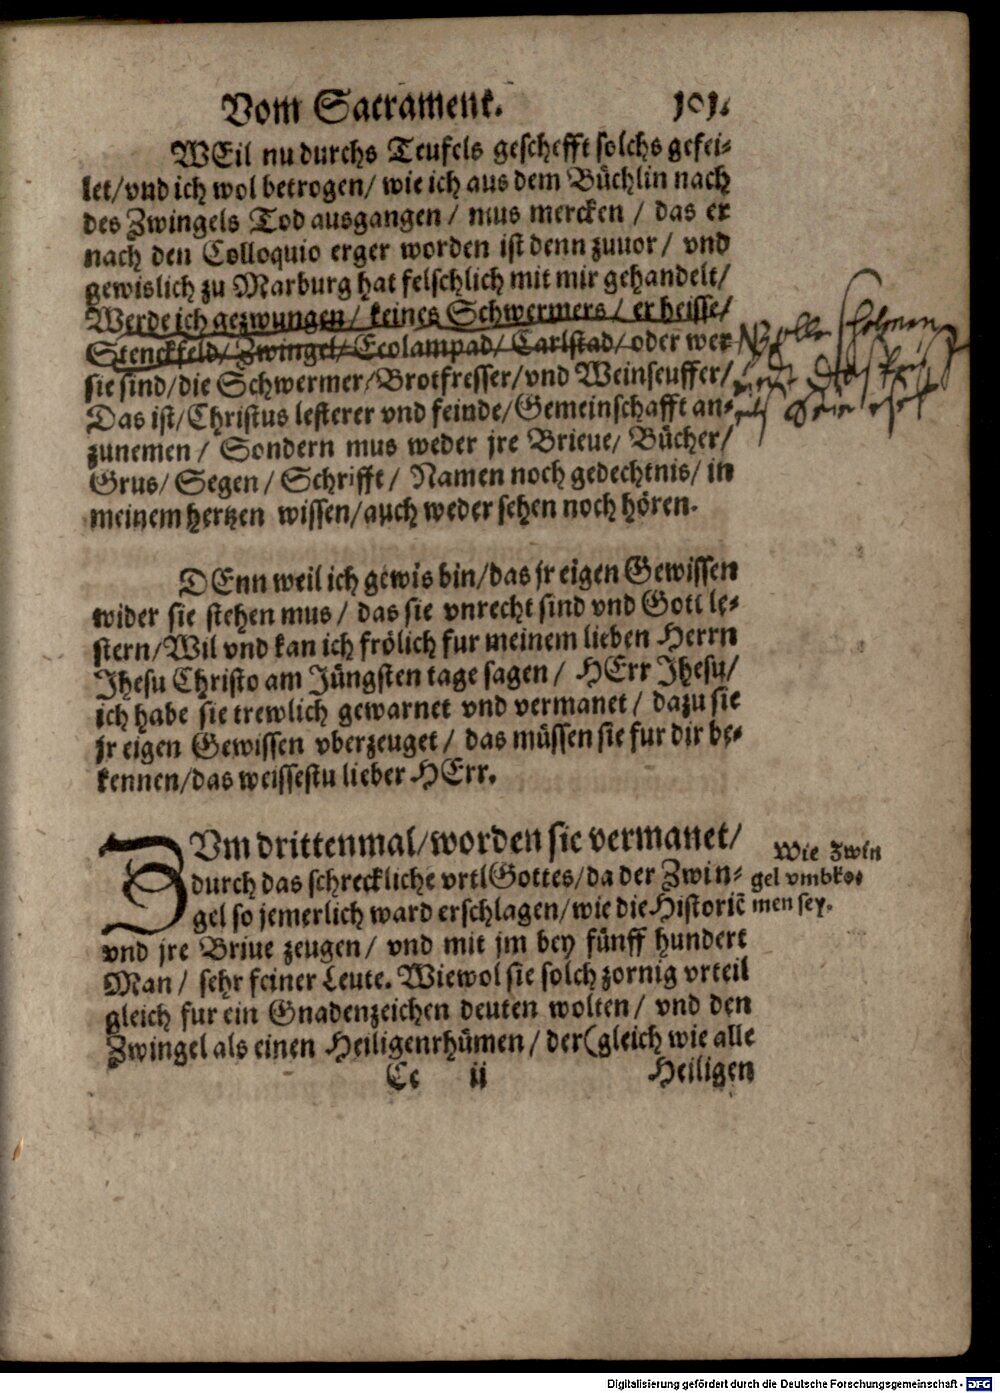 Vom Sacrament. 101.
WEil nu durchs Teufels geschefft solchs gefei-
let/vnd ich wol betrogen/ wie ich aus dem Büchlin nach
des Zwingels Tod ausgangen / mus mercken / das er
nach den Colloquio erger worden ist denn zuuor / vnd
gewislich zu Marburg hat felschlich mit mir gehandelt/
Werde ich gezwungen / keines Schwermers / er heisse/
Stenckfeld/Zwingel/Ecolampad/ Carlstad/oder wer
sie sind/die Schwermer/Brotfresser/vnd Weinseuffer/
Das ist/Christus lesterer vnd feinde/Gemeinschafft an-
zunemen / Sondern mus weder jre Brieue/ Bücher/
Grus/ Segen/ Schrifft/ Namen noch gedechtnis/ in
meinem hertzen wissen/auch weder sehen noch hören.
DEnn weil ich gewis bin/das jr eigen Gewissen
wider sie stehen mus / das sie vnrecht sind vnd Gott le-
stern/Wil vnd kan ich frölich fur meinem lieben Herrn
Jhesu Christo am Jüngsten tage sagen / HErr Jhesu/
ich habe sie trewlich gewarnet vnd vermanet / dazu sie
jr eigen Gewissen vberzeuget / das müssen sie fur dir be-
kennen/das weissestu lieber HErr.
ZVm drittenmal/worden sie vermanet/
durch das schreckliche vrtl Gottes/da der Zwin-
gel so jemerlich ward erschlagen/wie die Historiē
vnd jre Briue zeugen/ vnd mit jm bey fünff hundert
Man / sehr feiner Leute. Wiewol sie solch zornig vrteil
gleich fur ein Gnadenzeichen deuten wolten/ vnd den
Zwingel als einen Heiligen rhümen / der (gleich wie alle
Cc ij Heiligen
Wie Zwin
gel vmbko-
men sey.